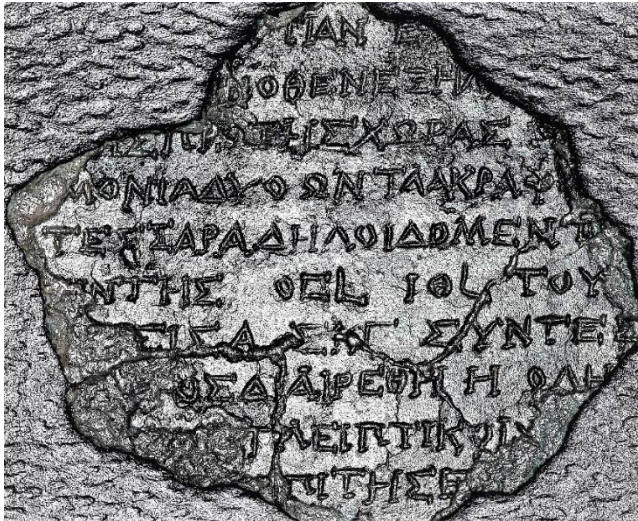 ΠΑΝ Ε
ΟΘΕΝ ΕΞΗΛ
ΗΣ ΠΡΩΤΗΣ ΧΩΡΑΣ
ΜΟΝΙΑ ΔΥΟ ΩΝ ΤΑ ΑΚΡΑ
ΤΕΣΣΑΡΑ ΔΗΛΟΙ Δ Ο ΜΕΝ
ΤΗΣ ΟϚL ΙΘL ΤΟΥ
ΕΙΣ ΙΣΑ ΣΚΓ ΣΥΝ ΤΕΣ
ΟΣ ΔΙΑΙΡΕΘΗ Η ΟΛΗ
ΓΛΕΙΠΤΙΚΟΙ Χ
ΠΙ ΤΗΣ Ε